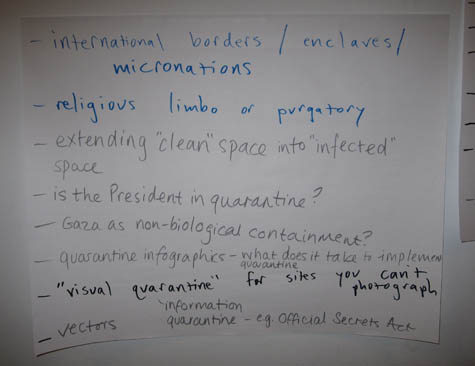 - international borders / enclaves /
micronations
- religious limbo or purgatory
- extending "clean" space into "infected"
space
- is the President in quarantine?
- Gaza as non-biological containment?
- quarantine infographics - what does it take to implemen
quarantine
- "visual quarantine" for sites you can't
photograph
information
- vectors quarantine - e.g. Official Secrets Act